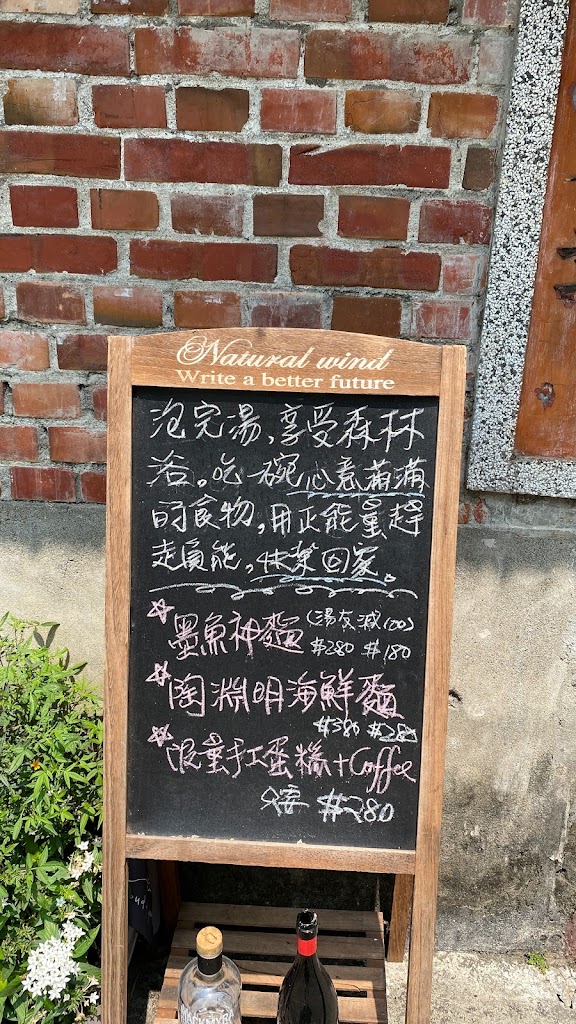 Natural wind
Write a better future
泡完湯，享受森林
浴。吃一碗心意滿滿
的食物，用正能量趕
走負能，快樂回家。
☆墨魚神麵（湯友減100）
$280 $180
☆陶淵明海鮮麵
$380 $280
☆限量手工蛋糕+Coffee
$280